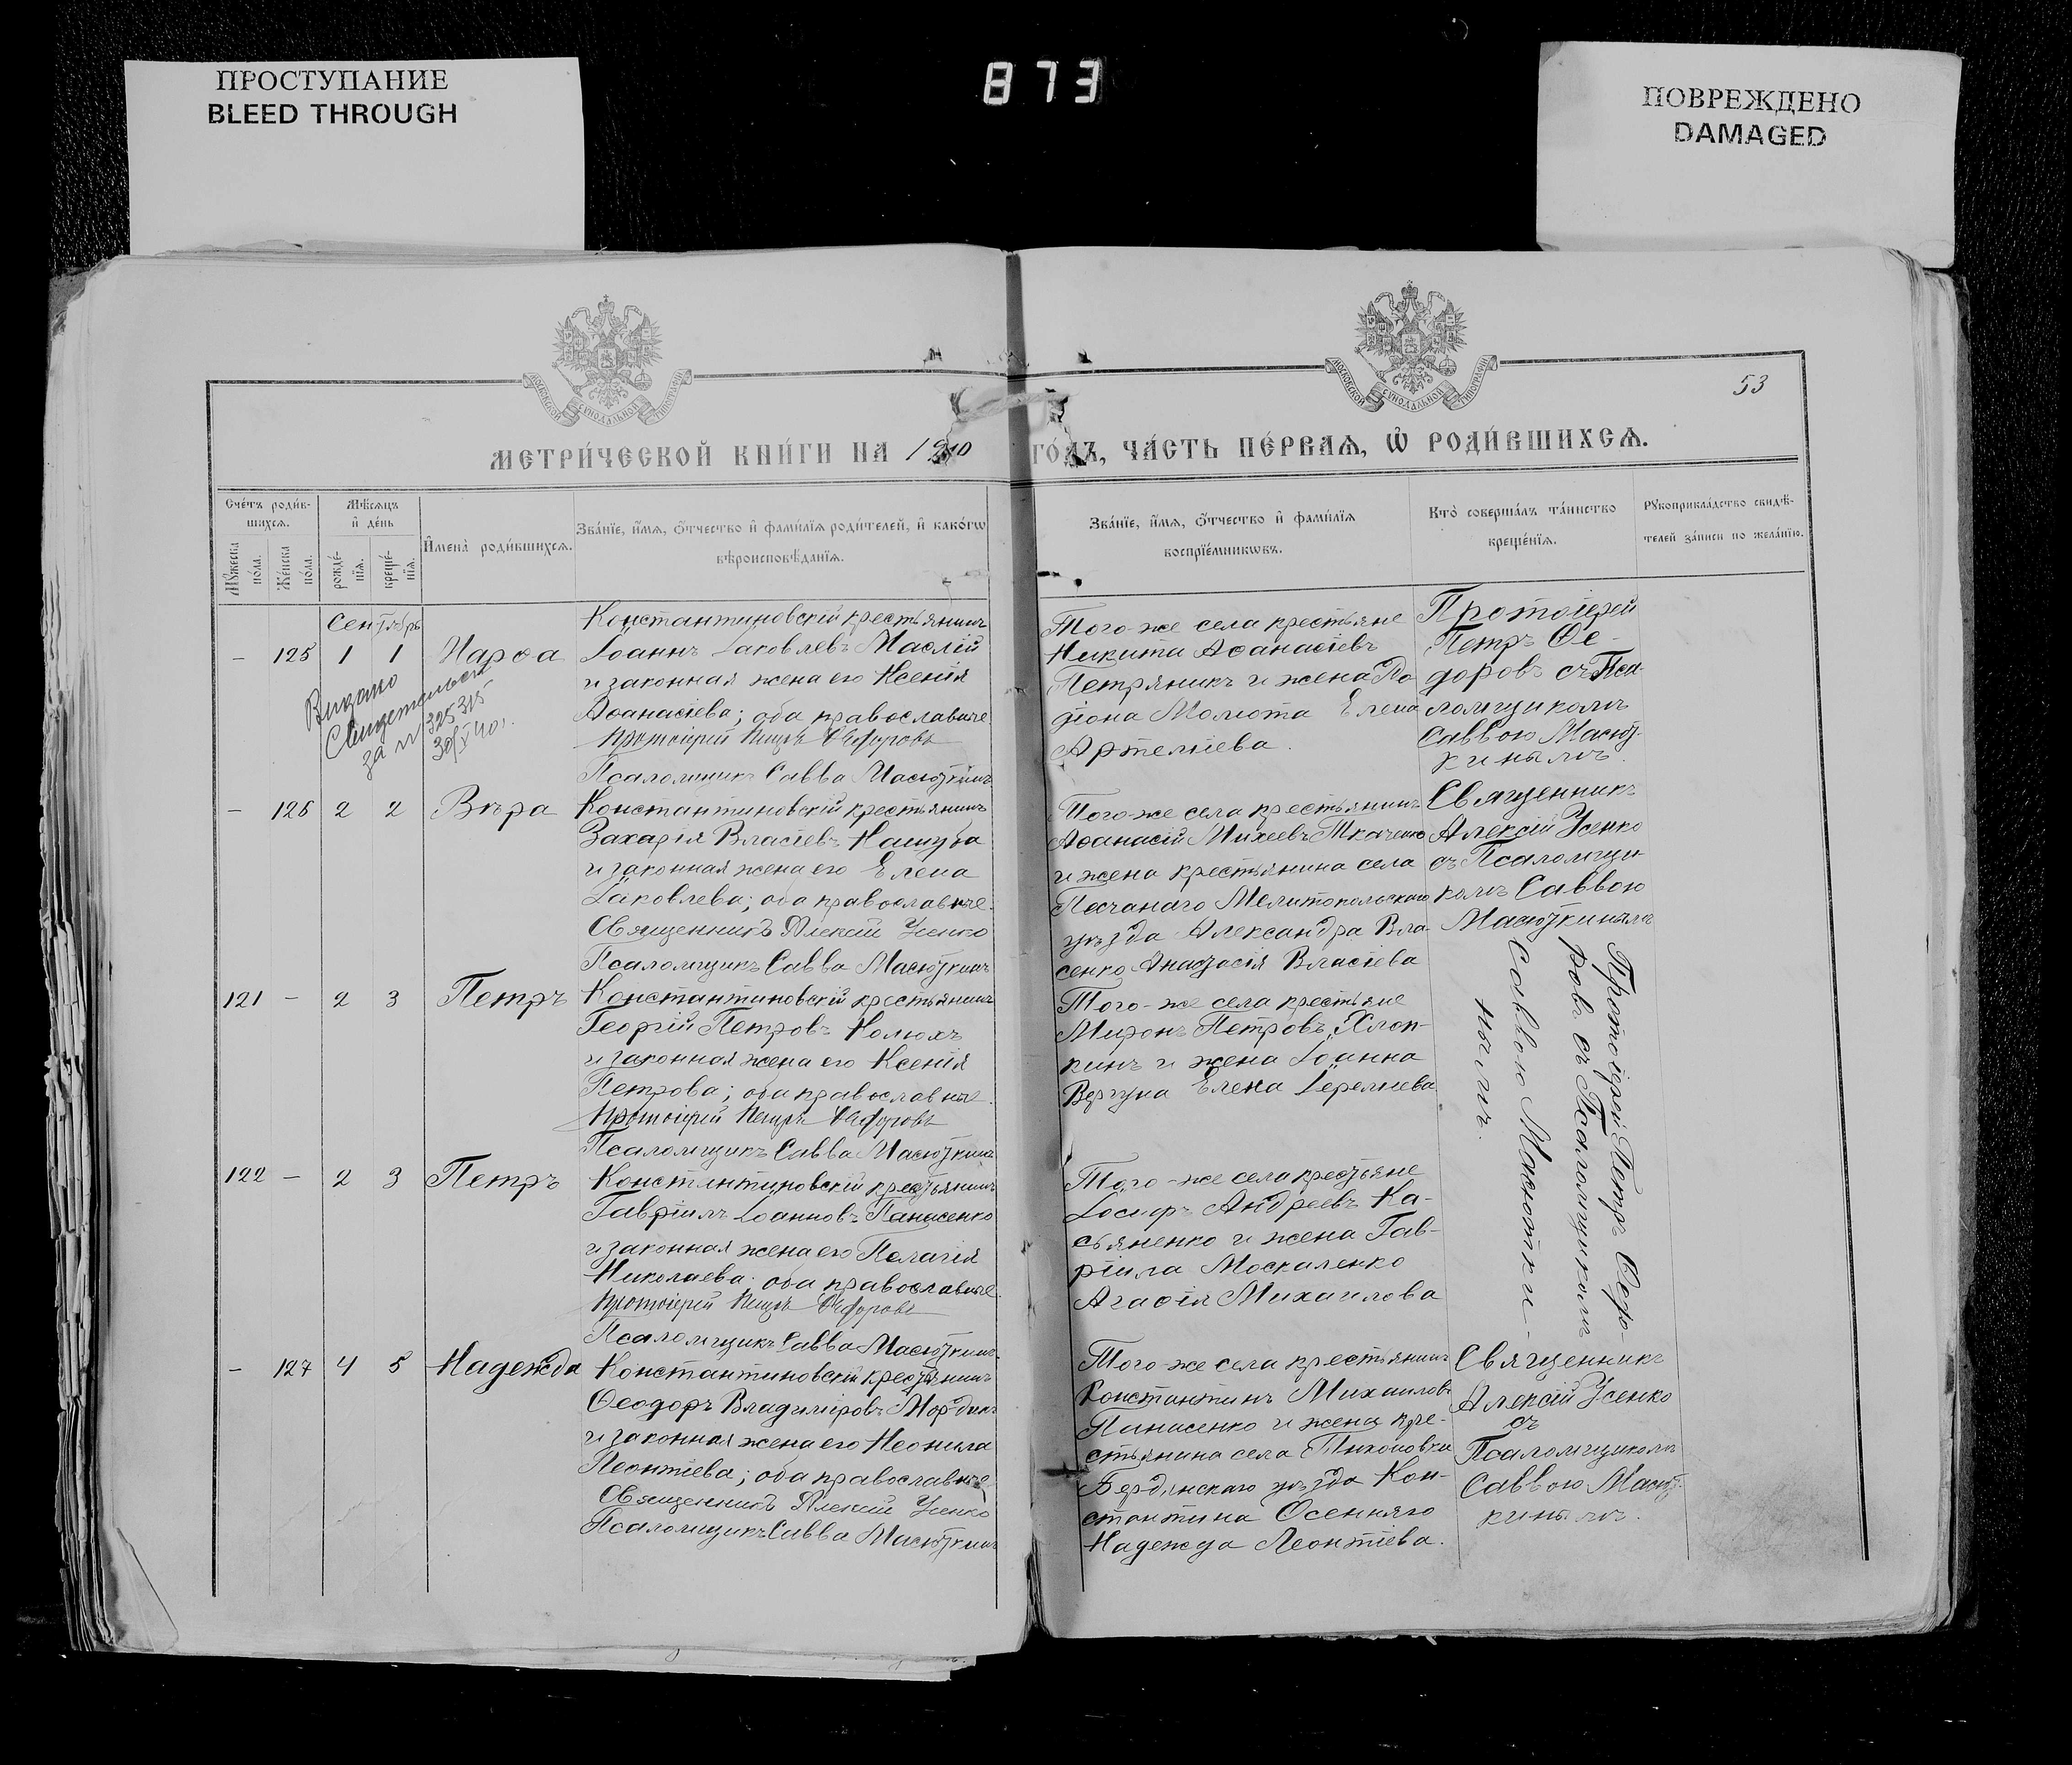 ПРОСТУПАНИЕ
BLEED THROUGH
873
ПОВРЕЖДЕНО
DAMAGED
МОСКОВСКОЙ СУНОДАЛЬНОЙ ТИПОГРАФІИ
МОСКОВСКОЙ СУНОДАЛЬНОЙ ТИПОГРАФІИ
53
МЕТРИ́ЧЕСКОЙ КНИ́ГИ НА 1910 ГО́ДЪ, ЧА́СТЬ ПЕ́РВАѦ, Ѡ҆ РОДИ́ВШИХСѦ.
Сче́тъ роди́в-
шихсѧ.
Мꙋ́жеска по́ла.
Же́нска по́ла.
Мѣ́сѧцъ
и҆ де́нь
рожде́-
нїѧ.
креще́-
нїѧ.
И҆мена̀ роди́вшихсѧ.
Зва́нїе, и҆́мѧ, ѻ҆́тчество и҆ фами́лїѧ роди́телей, и҆ како́гѡ
вѣроисповѣ́данїѧ.
Зва́нїе, и҆́мѧ, ѻ҆́тчество и҆ фами́лїѧ
воспрїе́мникѡвъ.
Кто̀ соверша́лъ та́инство
креще́нїѧ.
Рꙋкоприкла́дство свидѣ́-
телей за́писи по жела́нїю.
Сентябрь
– 125 1 1 Марѳа
Константиновскій крестьянинъ
Іоаннъ Іаковлевъ Маслій
и законная жена его Ксенія
Аѳанасіева; оба православные
Протоіерей Петръ Ѳедоровъ
Псаломщикъ Савва Масюткинъ
Выдано
Свидетельст
за № 325315
30/X 40 г.
Того-же села крестьяне
Никита Аѳанасіевъ
Петряникъ и жена Ро
діона Молюта Елена
Артеміева.
Протоіерей
Петръ Ѳе-
доровъ съ Пса-
ломщикомъ
Саввою Масют-
кинымъ.
– 126 2 2 Вѣра
Константиновскій крестьянинъ
Захарія Власіевъ Кашуба
и законная жена его Елена
Іаковлева; оба православные.
Священникъ Алексій Усенко
Псаломщикъ Савва Масюткинъ
Того-же села крестьянинъ
Аѳанасій Михеевъ Ткаченко
и жена крестьянина села
Песчанаго Мелитопольскаго
уѣзда Александра Вла-
сенко Анастасія Власіева
Священникъ
Алексій Усенко
съ Псаломщи-
комъ Саввою
Масюткинымъ
121 – 2 3 Петръ
Константиновскій крестьянинъ
Георгій Петровъ Колюхъ
и законная жена его Ксенія
Петрова; оба православные.
Протоіерей Петръ Ѳедоровъ
Псаломщикъ Савва Масюткинъ
Того-же села крестьяне
Миронъ Петровъ Хлоп-
кинъ и жена Іоанна
Вергуна Елена Іереміева
Протоіерей Петръ Ѳедо-
ровъ съ Псаломщикомъ
Саввою Масютки-
нымъ.
122 – 2 3 Петръ
Константиновскій крестьянинъ
Гавріилъ Іоанновъ Панасенко
и законная жена его Пелагія
Николаева; оба православные.
Протоіерей Петръ Ѳедоровъ
Псаломщикъ Савва Масюткинъ
Того-же села крестьяне
Іосифъ Андреевъ Ка-
сьяненко и жена Гав-
ріила Москаленко
Агаѳія Михаилова
– 127 4 5 Надежда
Константиновскій крестьянинъ
Ѳеодоръ Владиміровъ Мордикъ
и законная жена его Неонила
Леонтіева; оба православные
Священникъ Алексій Усенко
Псаломщикъ Савва Масюткинъ
Того-же села крестьянинъ
Константинъ Михаиловъ
Панасенко и жена кре-
стьянина села Тихоновки
Бердянскаго уѣзда Кон-
стантина Осенняго
Надежда Леонтіева.
Священникъ
Алексій Усенко
съ
Псаломщикомъ
Саввою Масют-
кинымъ.